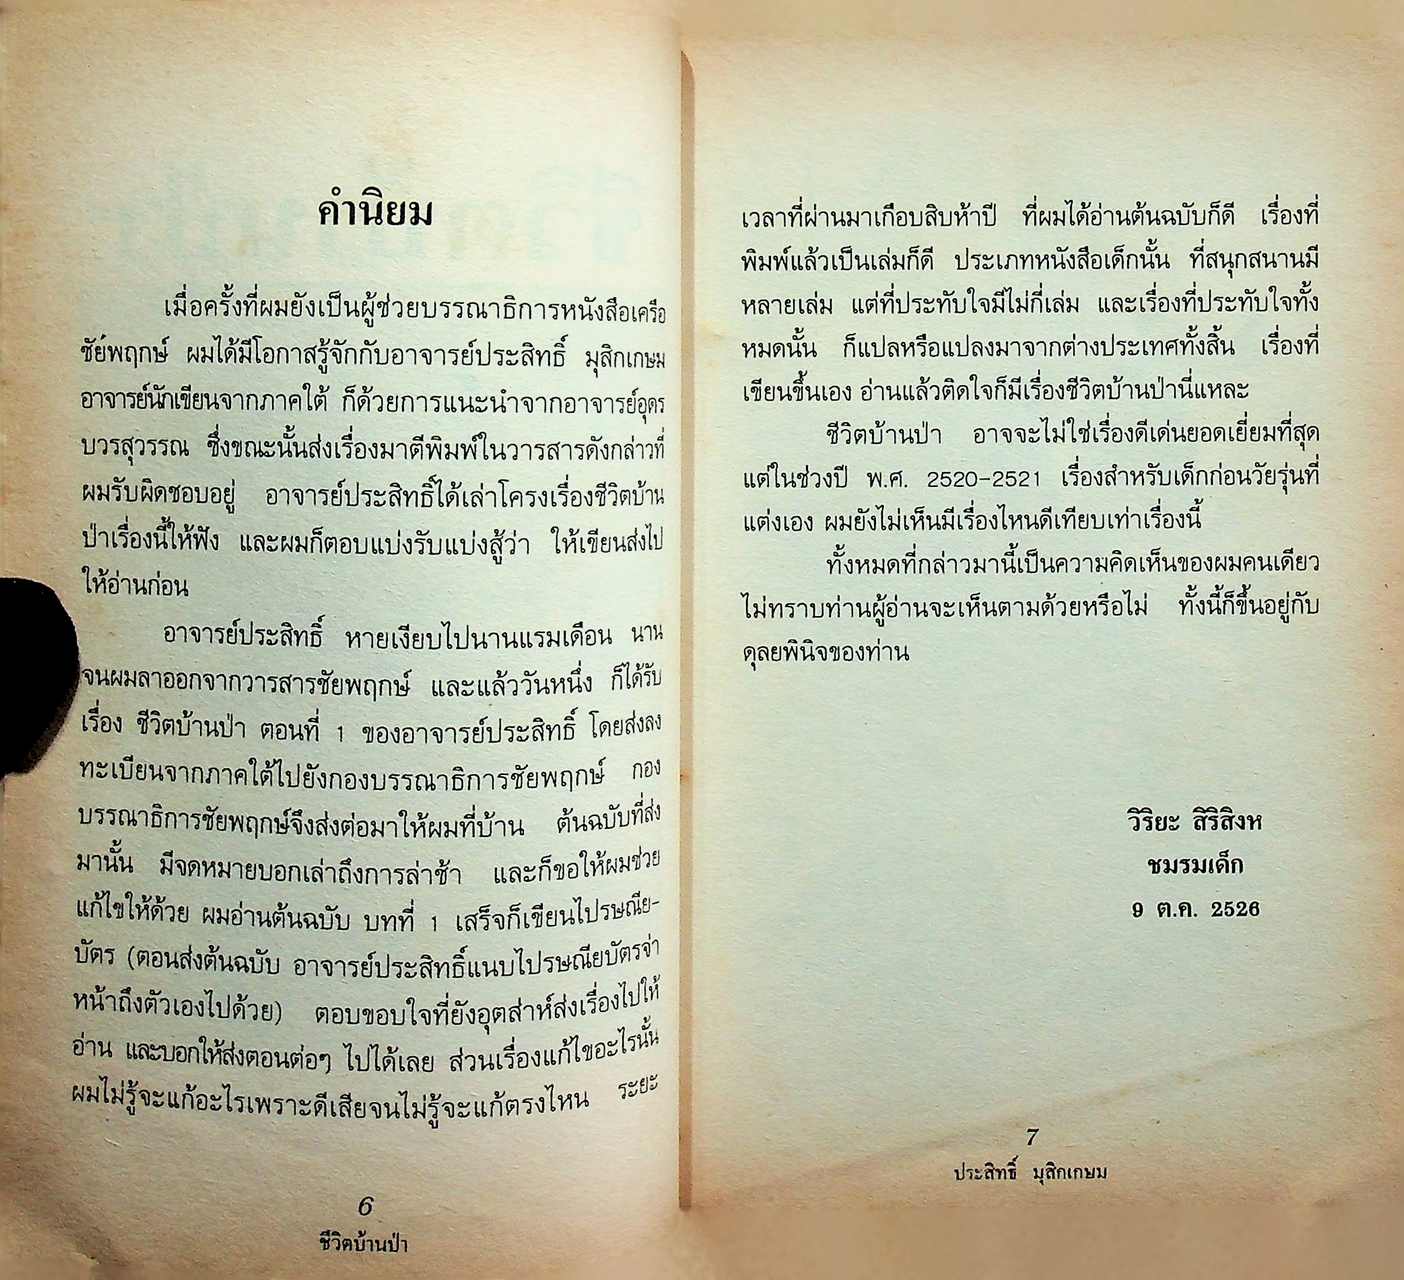 คำนิยม
เมื่อครั้งที่ผมยังเป็นผู้ช่วยบรรณาธิการหนังสือเครือ
ชัยพฤกษ์ ผมได้มีโอกาสรู้จักกับอาจารย์ประสิทธิ์ มุสิกเกษม
อาจารย์นักเขียนจากภาคใต้ ก็ด้วยการแนะนำจากอาจารย์อุดร
บวรสุวรรณ ซึ่งขณะนั้นส่งเรื่องมาตีพิมพ์ในวารสารดังกล่าวที่
ผมรับผิดชอบอยู่ อาจารย์ประสิทธิ์ได้เล่าโครงเรื่องชีวิตบ้าน
ป่าเรื่องนี้ให้ฟัง และผมก็ตอบแบ่งรับแบ่งสู้ว่า ให้เขียนส่งไป
ให้อ่านก่อน
อาจารย์ประสิทธิ์ หายเงียบไปนานแรมเดือน นาน
จนผมลาออกจากวารสารชัยพฤกษ์ และแล้ววันหนึ่ง ก็ได้รับ
เรื่อง ชีวิตบ้านป่า ตอนที่ 1 ของอาจารย์ประสิทธิ์ โดยส่งลง
ทะเบียนจากภาคใต้ไปยังกองบรรณาธิการชัยพฤกษ์ กอง
บรรณาธิการชัยพฤกษ์จึงส่งต่อมาให้ผมที่บ้าน ต้นฉบับที่ส่ง
มานั้น มีจดหมายบอกเล่าถึงการล่าช้า และก็ขอให้ผมช่วย
แก้ไขให้ด้วย ผมอ่านต้นฉบับ บทที่ 1 เสร็จก็เขียนไปรษณีย-
บัตร (ตอนส่งต้นฉบับ อาจารย์ประสิทธิ์แนบไปรษณียบัตรจ่า
หน้าถึงตัวเองไปด้วย) ตอบขอบใจที่ยังอุตส่าห์ส่งเรื่องไปให้
อ่าน และบอกให้ส่งตอนต่อๆ ไปได้เลย ส่วนเรื่องแก้ไขอะไรนั้น
ผมไม่รู้จะแก้อะไรเพราะดีเสียจนไม่รู้จะแก้ตรงไหน ระยะ
6
ชีวิตบ้านป่า
เวลาที่ผ่านมาเกือบสิบห้าปี ที่ผมได้อ่านต้นฉบับก็ดี เรื่องที่
พิมพ์แล้วเป็นเล่มก็ดี ประเภทหนังสือเด็กนั้น ที่สนุกสนานมี
หลายเล่ม แต่ที่ประทับใจมีไม่กี่เล่ม และเรื่องที่ประทับใจทั้ง
หมดนั้น ก็แปลหรือแปลงมาจากต่างประเทศทั้งสิ้น เรื่องที่
เขียนขึ้นเอง อ่านแล้วติดใจก็มีเรื่องชีวิตบ้านป่านี่แหละ
ชีวิตบ้านป่า อาจจะไม่ใช่เรื่องดีเด่นยอดเยี่ยมที่สุด
แต่ในช่วงปี พ.ศ. 2520-2521 เรื่องสำหรับเด็กก่อนวัยรุ่นที่
แต่งเอง ผมยังไม่เห็นมีเรื่องไหนดีเทียบเท่าเรื่องนี้
ทั้งหมดที่กล่าวมานี้เป็นความคิดเห็นของผมคนเดียว
ไม่ทราบท่านผู้อ่านจะเห็นตามด้วยหรือไม่ ทั้งนี้ก็ขึ้นอยู่กับ
ดุลยพินิจของท่าน
วิริยะ สิริสิงห
ชมรมเด็ก
9 ต.ค. 2526
7
ประสิทธิ์ มุสิกเกษม